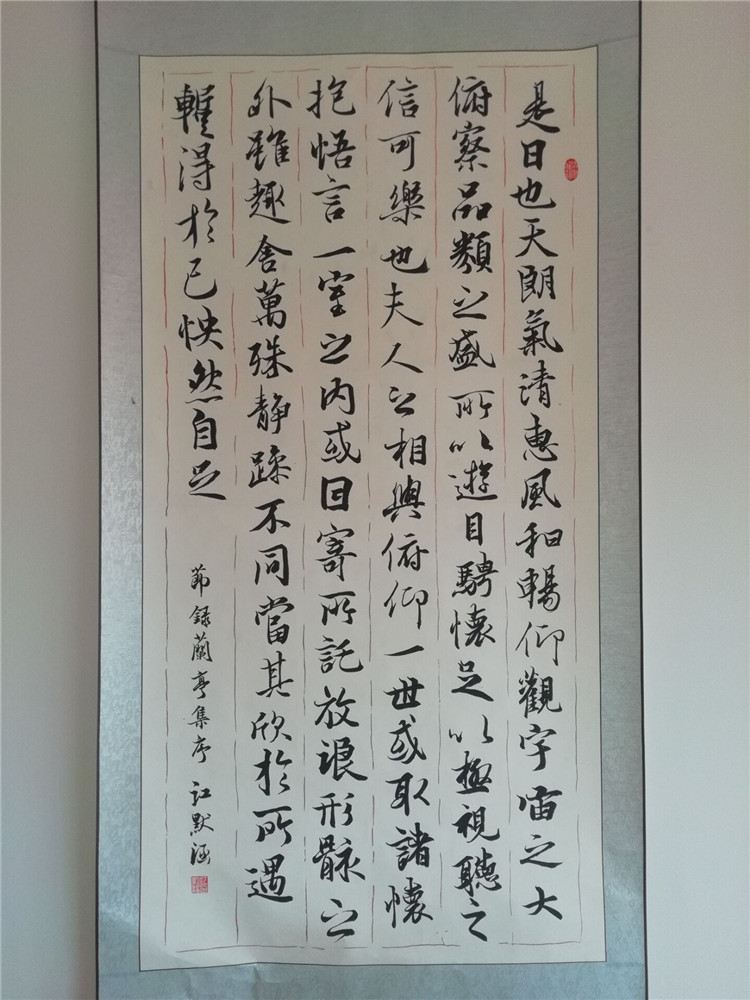 是日也天朗氣清惠風和暢仰觀宇宙之大
俯察品類之盛所以遊目騁懷足以極視聽之
信可樂也夫人之相與俯仰一世或取諸懷
抱悟言一室之内或因寄所託放浪形骸之
外雖趣舍萬殊静躁不同當其欣於所遇
暫得於己怏然自足
節録蘭亭集序 江默涵